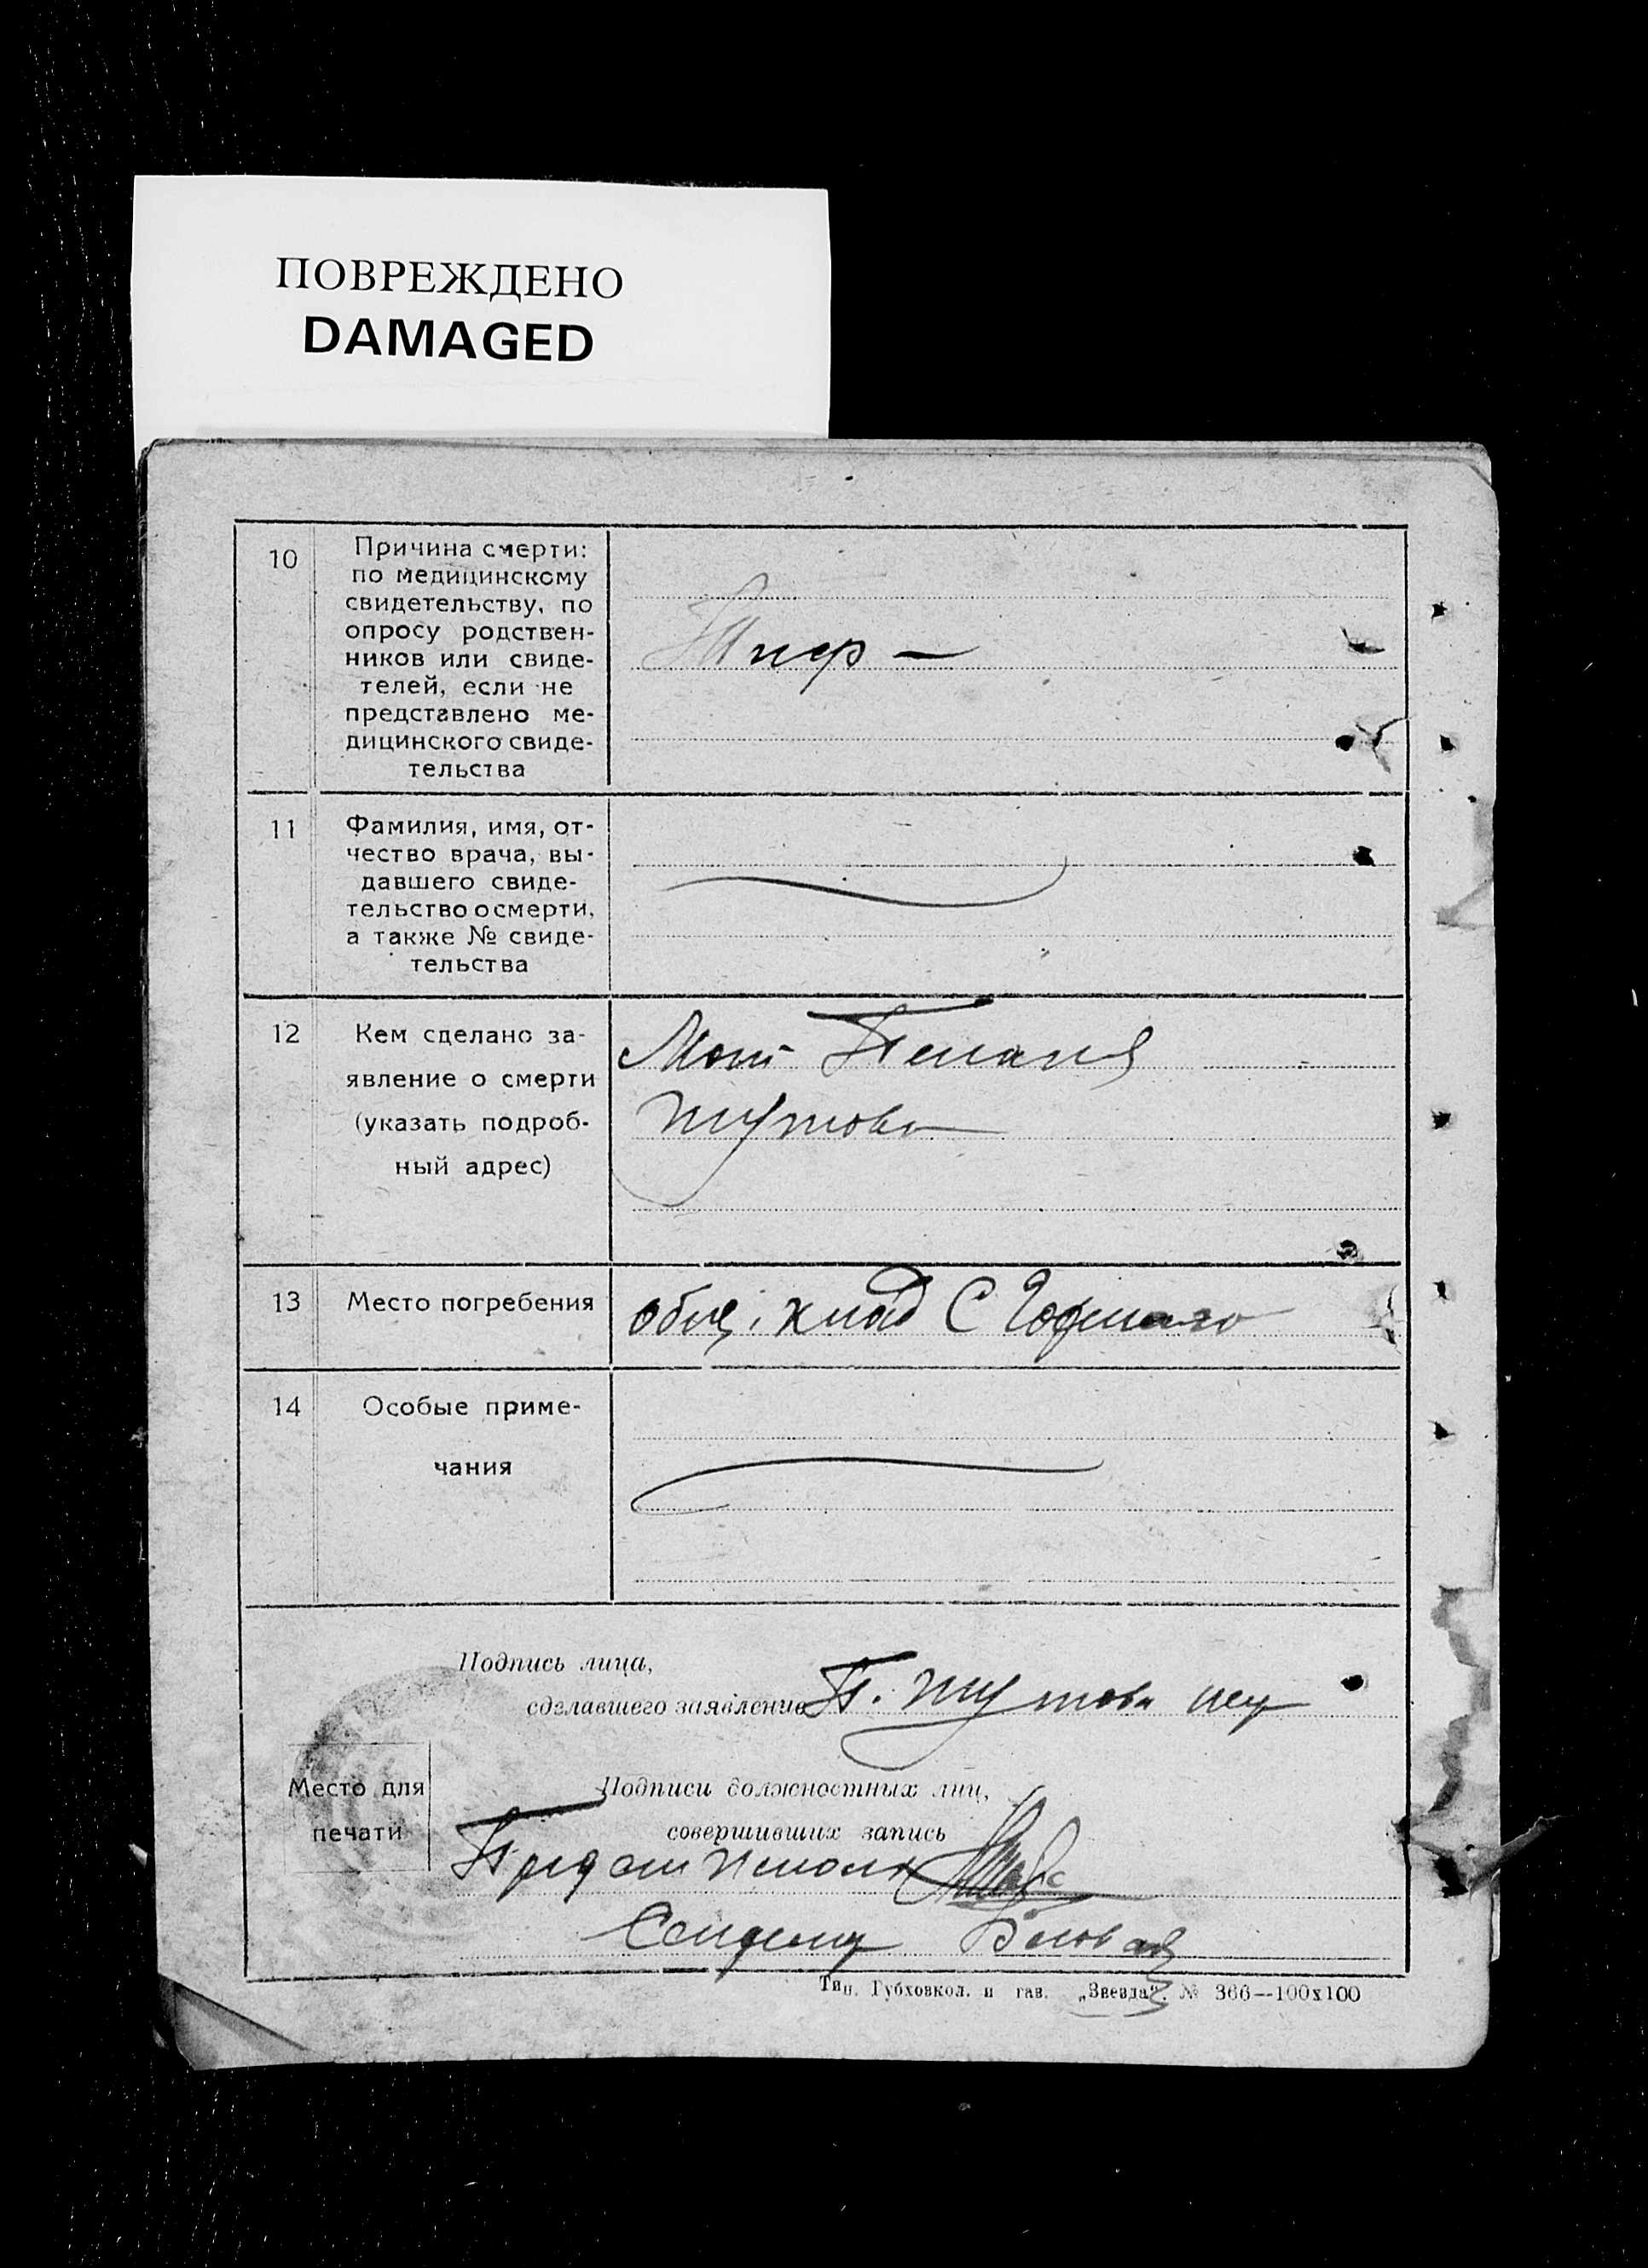 ПОВРЕЖДЕНО
DAMAGED
10
Причина смерти:
по медицинскому
свидетельству, по
опросу родствен-
ников или свиде-
телей, если не
представлено ме-
дицинского свиде-
тельства
11
Фамилия, имя, от-
чество врача, вы-
давшего свиде-
тельство о смерти,
а также № свиде-
тельства
12
Кем сделано за-
явление о смерти
(указать подроб-
ный адрес)
13
Место погребения
общ. клад С
14
Особые приме-
чания
Подпись лица,
сделавшего заявление
П. Шутова
Подписи должностных лиц,
совершивших запись
Место для
печати
Белова
Тип. Губховкол. и гав. „Звезда“. № 366—100х100